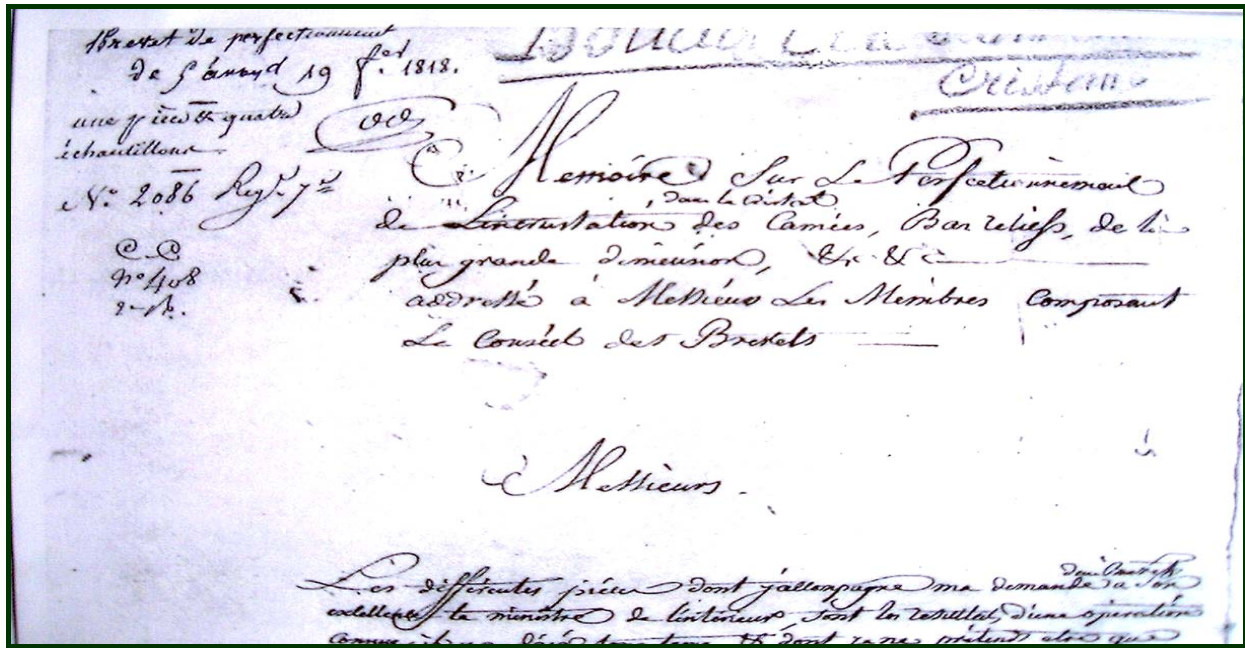 Brevet de perfectionnement
de 5 ans, du 19 f.er 1818.
une pièce & quatre
échantillons.
N.o 2086
C.C
n.o 408
Cristaux
Memoire Sur Le Perfectionnement
de Lincrustation, dans le cristal des Camées, Bas reliefs, de la
plus grande dimension, &c &c
addressé à Messieurs Les Membres Composant
Le Conseil des Brevets
Messieurs.
Les différentes pièces dont j'accompagne ma demande à Son
excellence le ministre de l'intérieur, sont les resultats d'une opération
connue dont je ne prétends etre que